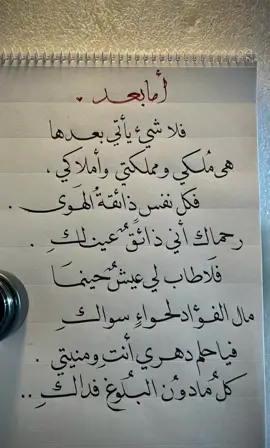 أما بعد
فلا شيء يأتي بعدها
هي مُلكي ومملكتي وأملاكي ،
فكل نفس ذائقةُ الهَوى .
رحماك أني ذائقٌ عيناكِ .
فَلاطاب لي عيشٌ حينمَا
مال الفؤاد لحواءٍ سواكِ
فيا حلم دهري أنتِ ومنيتي .
كلُ مادون البلُوغ فداكِ ..